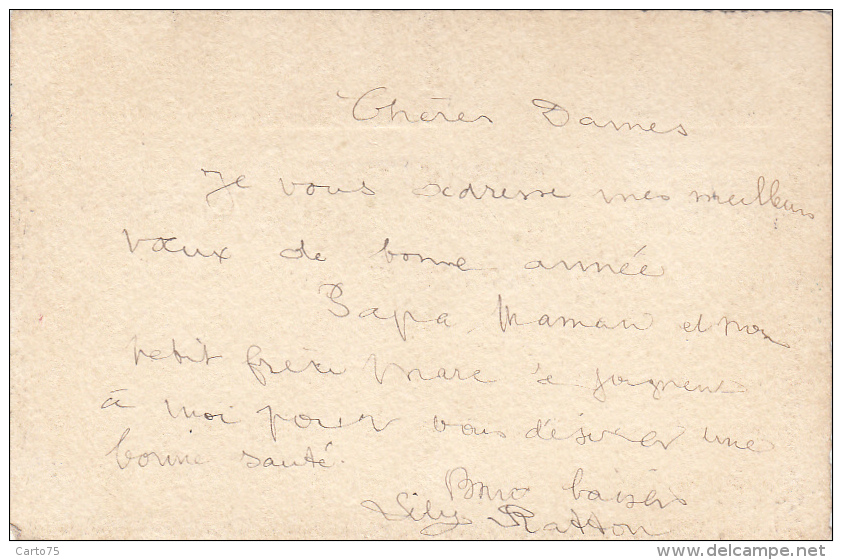 Chères Dames
Je vous adresse mes meilleurs
vœux de bonne année
Papa, Maman et mon
petit frère Marc se joignent
à moi pour vous désirer une
bonne santé.
Bons baisers
Lily Ratton
Carto75
www.delcampe.net